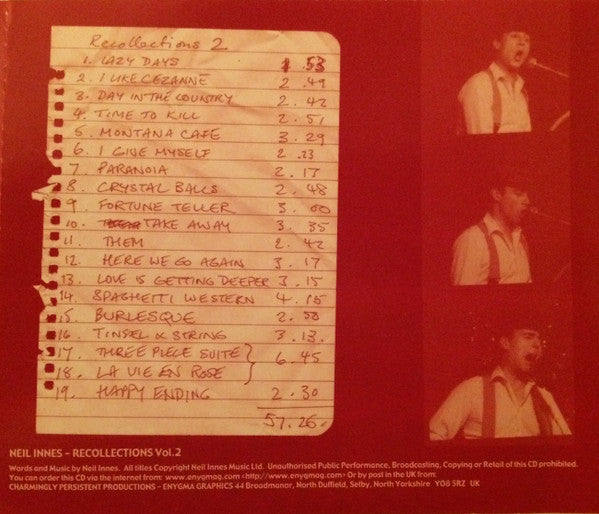 Recollections 2
1. LAZY DAYS 2.53
2. I LIKE CEZANNE 2.49
3. DAY IN THE COUNTRY 2.42
4. TIME TO KILL 2.51
5. MONTANA CAFE 3.29
6. I GIVE MYSELF 2.23
7. PARANOIA 2.17
8. CRYSTAL BALLS 2.48
9. FORTUNE TELLER 3.00
10. TAKE AWAY 3.35
11. THEM 2.42
12. HERE WE GO AGAIN 3.17
13. LOVE IS GETTING DEEPER 3.15
14. SPAGHETTI WESTERN 4.15
15. BURLESQUE 2.50
16. TINSEL & STRING 3.13.
17. THREE PIECE SUITE } 6.45
18. LA VIE EN ROSE
19. HAPPY ENDING 2.30
57.26.
NEIL INNES – RECOLLECTIONS Vol.2
Words and Music by Neil Innes. All titles Copyright Neil Innes Music Ltd. Unauthorised Public Performance, Broadcasting, Copying or Retail of this CD prohibited.
You can order this CD via the internet from: www.enygmag.com <http://www.enyqmag.com> Or by post in the UK from:
CHARMINGLY PERSISTENT PRODUCTIONS – ENYGMA GRAPHICS 44 Broadmanor, North Duffield, Selby, North Yorkshire YO8 5RZ UK